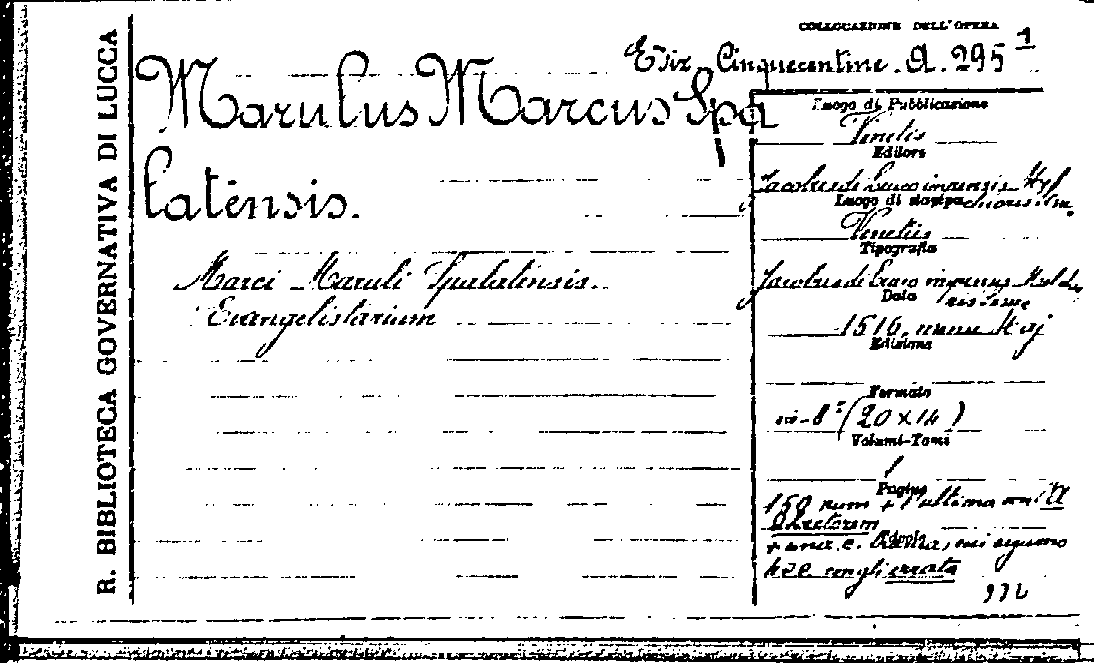 R. BIBLIOTECA GOVERNATIVA DI LUCCA
COLLOCAZIONE DELL'OPERA
Cinquecentine. A. 295 1
Marulus Marcus Spa
latensis.
Marci Maruli Spalatensis.
Evangelistarium
Luogo di Pubblicazione
Venetiis
Editore
Jacobus de Leuco impensis
Luogo di stampa
Venetiis
Tipografia
Jacobus de Leuco
Data
1516, mense Maj
Edizione
Formato
in-8° (20 x 14)
Volumi-Tomi
1
Pagine
150 num + l'ultima
errata